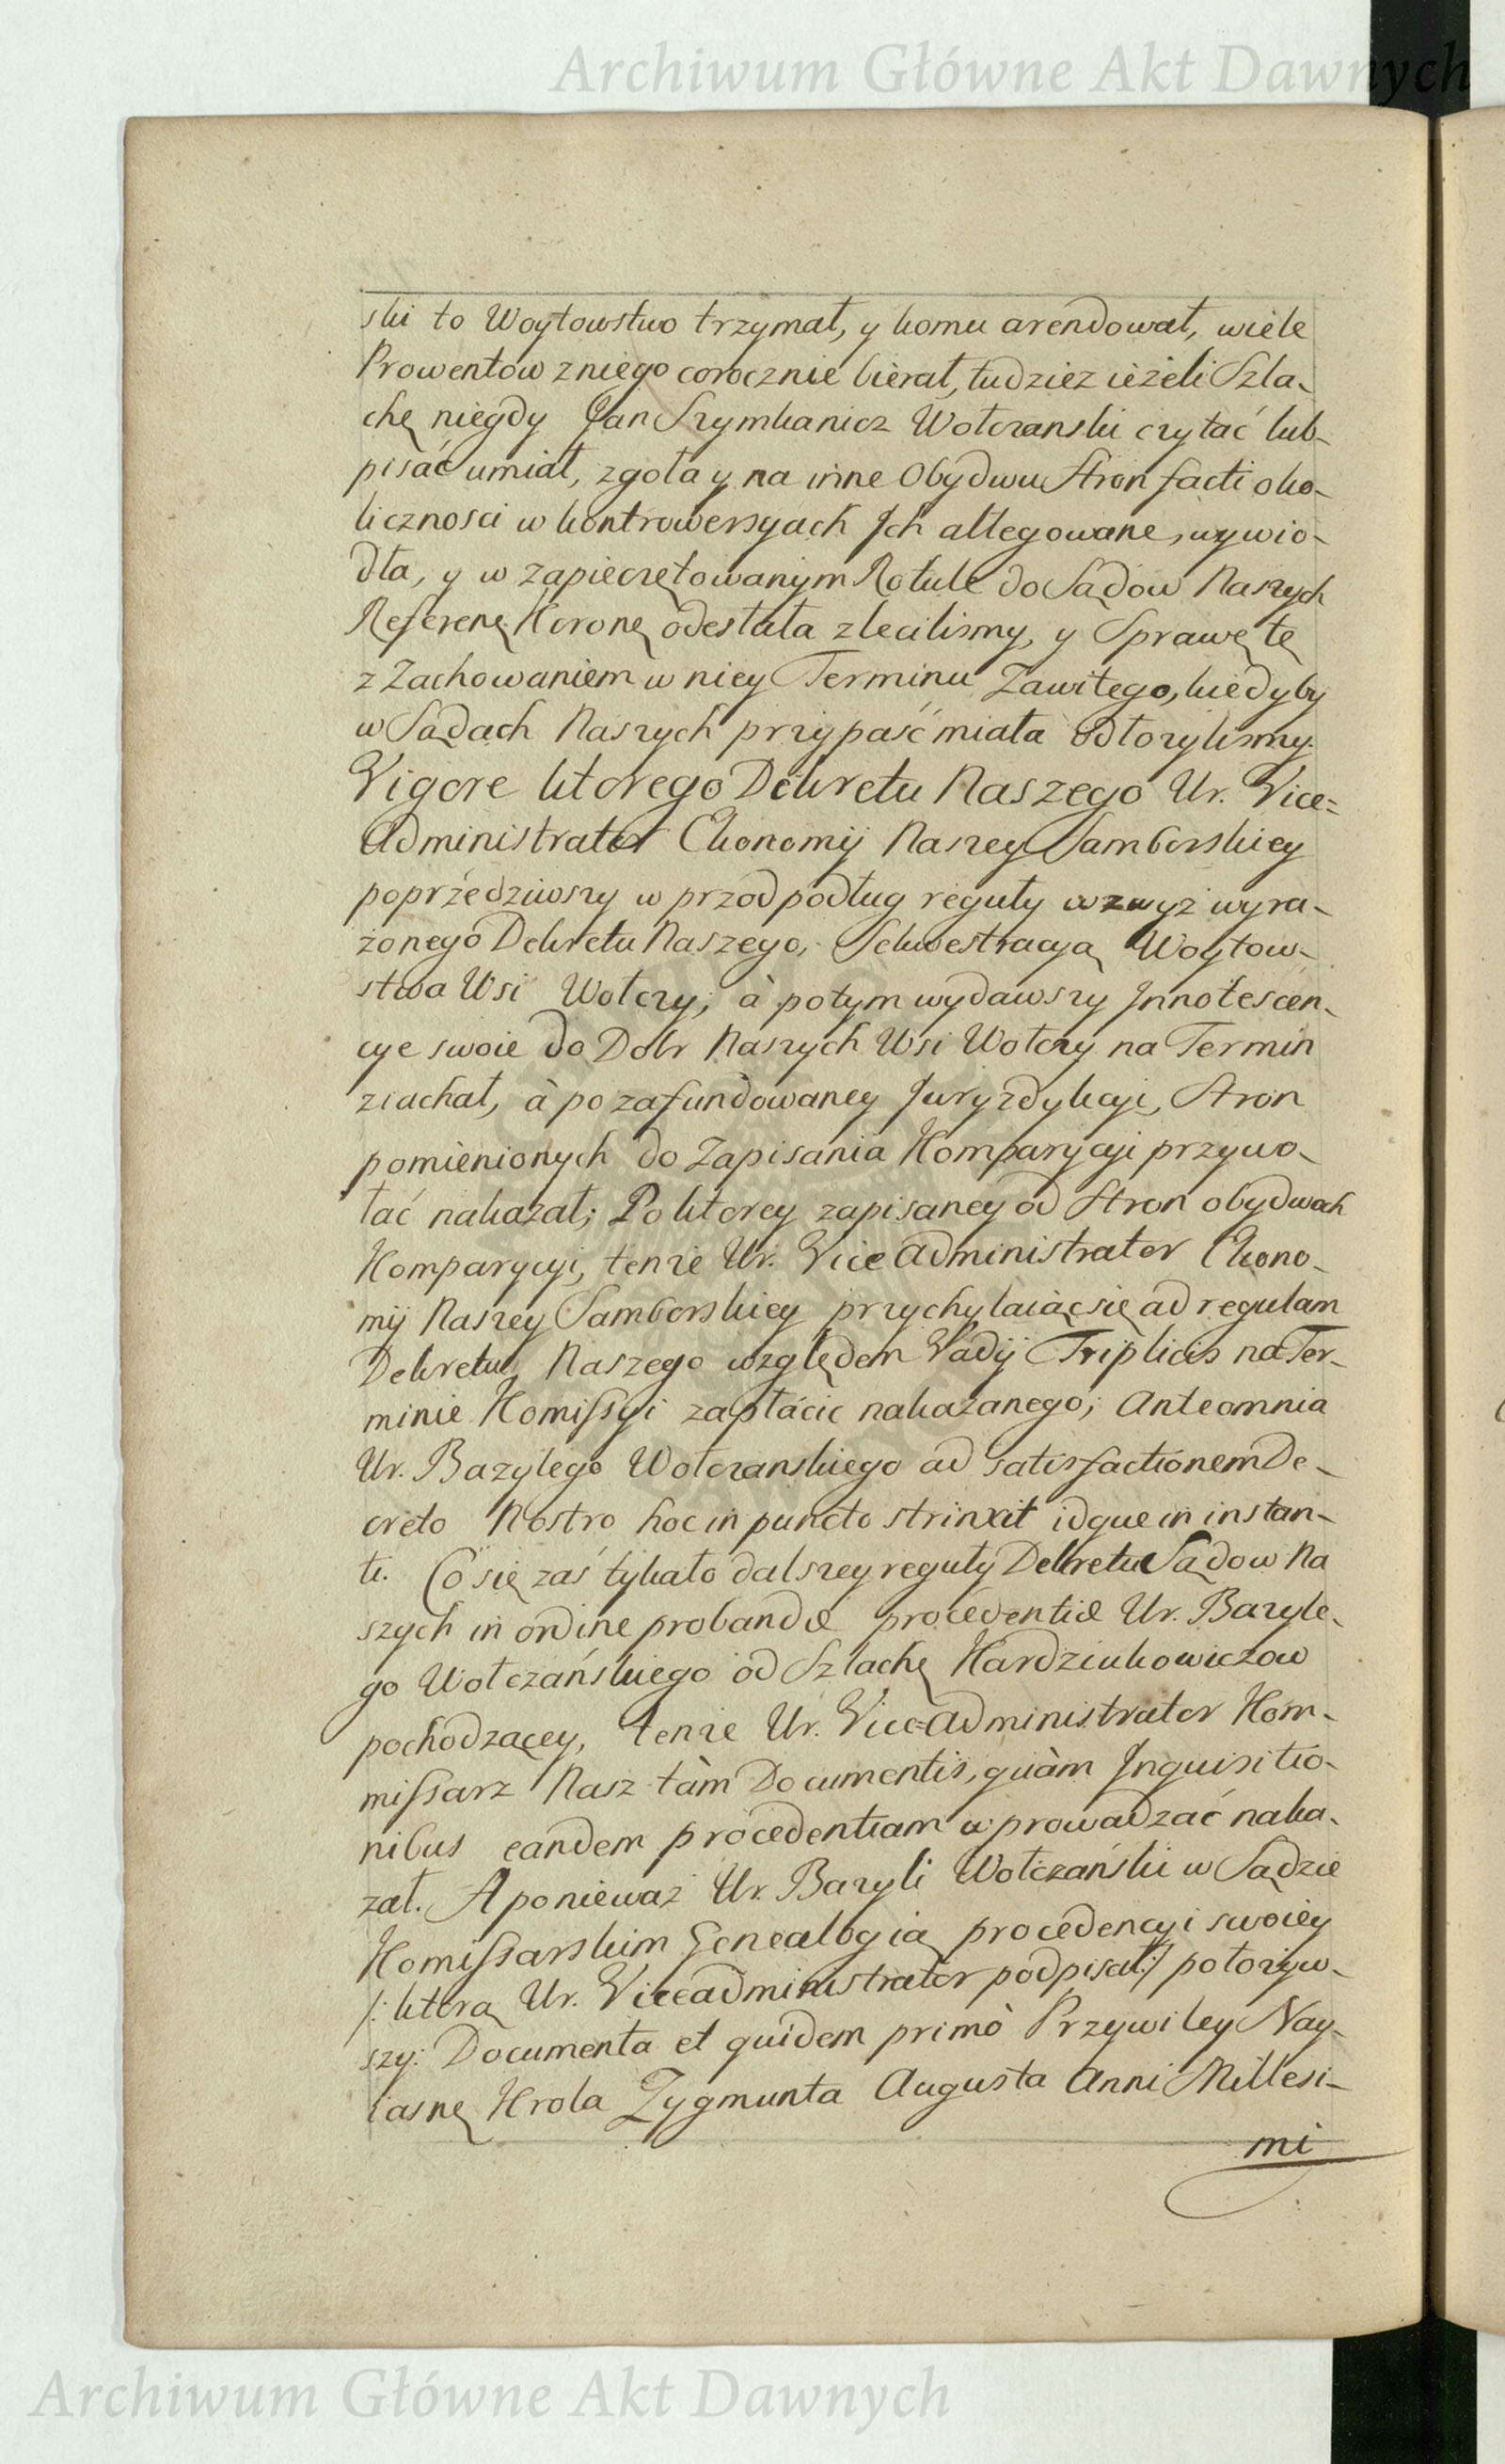 Archiwum Główne Akt Dawnych
ski to Woytowstwo trzymał, y komu arendował, wiele
Prowentow z niego corocznie bierał, tudziez ieżeli Szla-
chę niegdy Jan Szymkanicz Wołczanski czytać lub-
pisać umiał, zgoła y na inne Obydwu Stron facti oko-
licznosci w kontrowersyach Jch allegowane, wywio-
dła, y w zapieczętowanym Rotule do Sądow Naszych
Referenę Koronę odesłała zlecilismy, y Sprawę tę
z Zachowaniem w niey Terminu Zawitego, kiedyby
w Sądach Naszych przypaść miała odłozylismy.
Vigore ktorego Dekretu Naszego Ur. Vice=
Administrator Ekonomij Naszey Samborskiey
poprzedziwszy w przod podług reguły wzwyż wyra-
żonego Dekretu Naszego, Sekwestracyą Woytow-
stwa Wsi Wołczy, à potym wydawszy Jnnotescen-
cye swoie do Dobr Naszych Wsi Wołczy na Termin
ziachał, à po zafundowaney Juryzdykcyi, Stron
pomienionych do Zapisania Komparycyi przywo-
łać nakazał; Po ktorey zapisaney od Stron obydwoch
Komparycyi, tenze Ur. Vice Administrator Ekono-
mij Naszey Samborskiey przychylaiąc się ad regulam
Dekretu Naszego względem Vadij Triplicis na Ter-
minie Komissyi zapłácic nakazanego; Anteomnia
Ur. Bazylego Wołczanskiego ad satisfactionem De-
creto Nostro hoc in puncto strinxit idque in instan-
ti. Co się zaś tykało dalszey reguły Dekretu Sądow Na
szych in ordine probandæ procedentiæ Ur. Bazyle-
go Wołczańskiego od Szlachę Kardziukowiczow
pochodzącey, tenze Ur. Vice=Administrator Kom-
missarz Nasz tàm Documentis, quàm Jnquisitio-
nibus eandem procedentiam wprowadzać naka-
zał. A ponieważ Ur. Bazyli Wołczański w Sądzie
Komissarskim Genealogią procedencyi swoiey
/: ktorą Ur. Viceadministrator podpisał :/ położyw-
szy: Documenta et quidem primò Przywiley Nay-
iasnę Krola Zygmunta Augusta Anni Millesi-
mi
Archiwum Główne Akt Dawnych